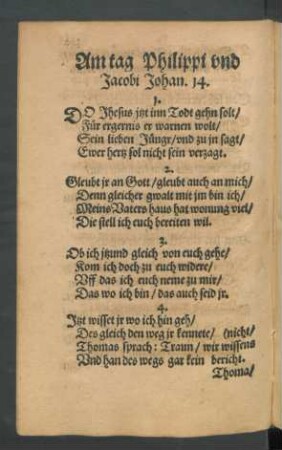 Am tag Philippi vnd
Jacobi Johan. 14.
1.
DO Jhesus jtzt inn Todt gehn solt/
Für ergernis er warnen wolt/
Sein lieben Jüngr/ vnd zu jn sagt/
Ewer hertz sol nicht sein verzagt.
2.
Gleubt jr an Gott/ gleubt auch an mich/
Denn gleicher gwalt mit jm bin ich/
Meins Vaters haus hat wonung viel/
Die stell ich euch bereiten wil.
3.
Ob ich jtzund gleich von euch gehe/
Kom ich doch zu euch widere/
Uff das ich euch neme zu mir/
Das wo ich bin/ das auch seid jr.
4.
Jtzt wisset jr wo ich hin geh/
Des gleich den weg jr kennete/ (nicht/
Thomas sprach: Traun/ wir wissens
Vnd han des wegs gar kein bericht.
Thoma/